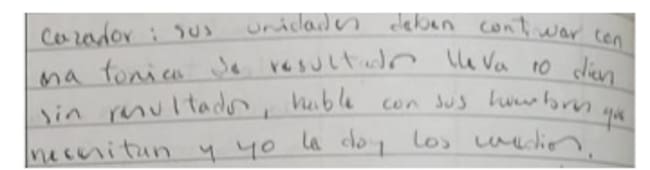 Cazador: sus unidades deben continuar con
una tonica de resultados lleva 10 dias
sin resultados, hable con sus hombres que
necesitan y yo le doy los medios.